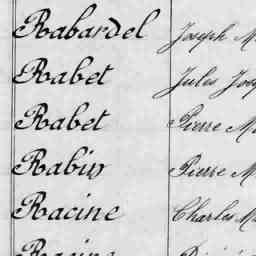 Rabardel Joseph M
Rabet Jules Jos
Rabet Pierre M
Rabin Pierre M
Racine Charles M
Racine